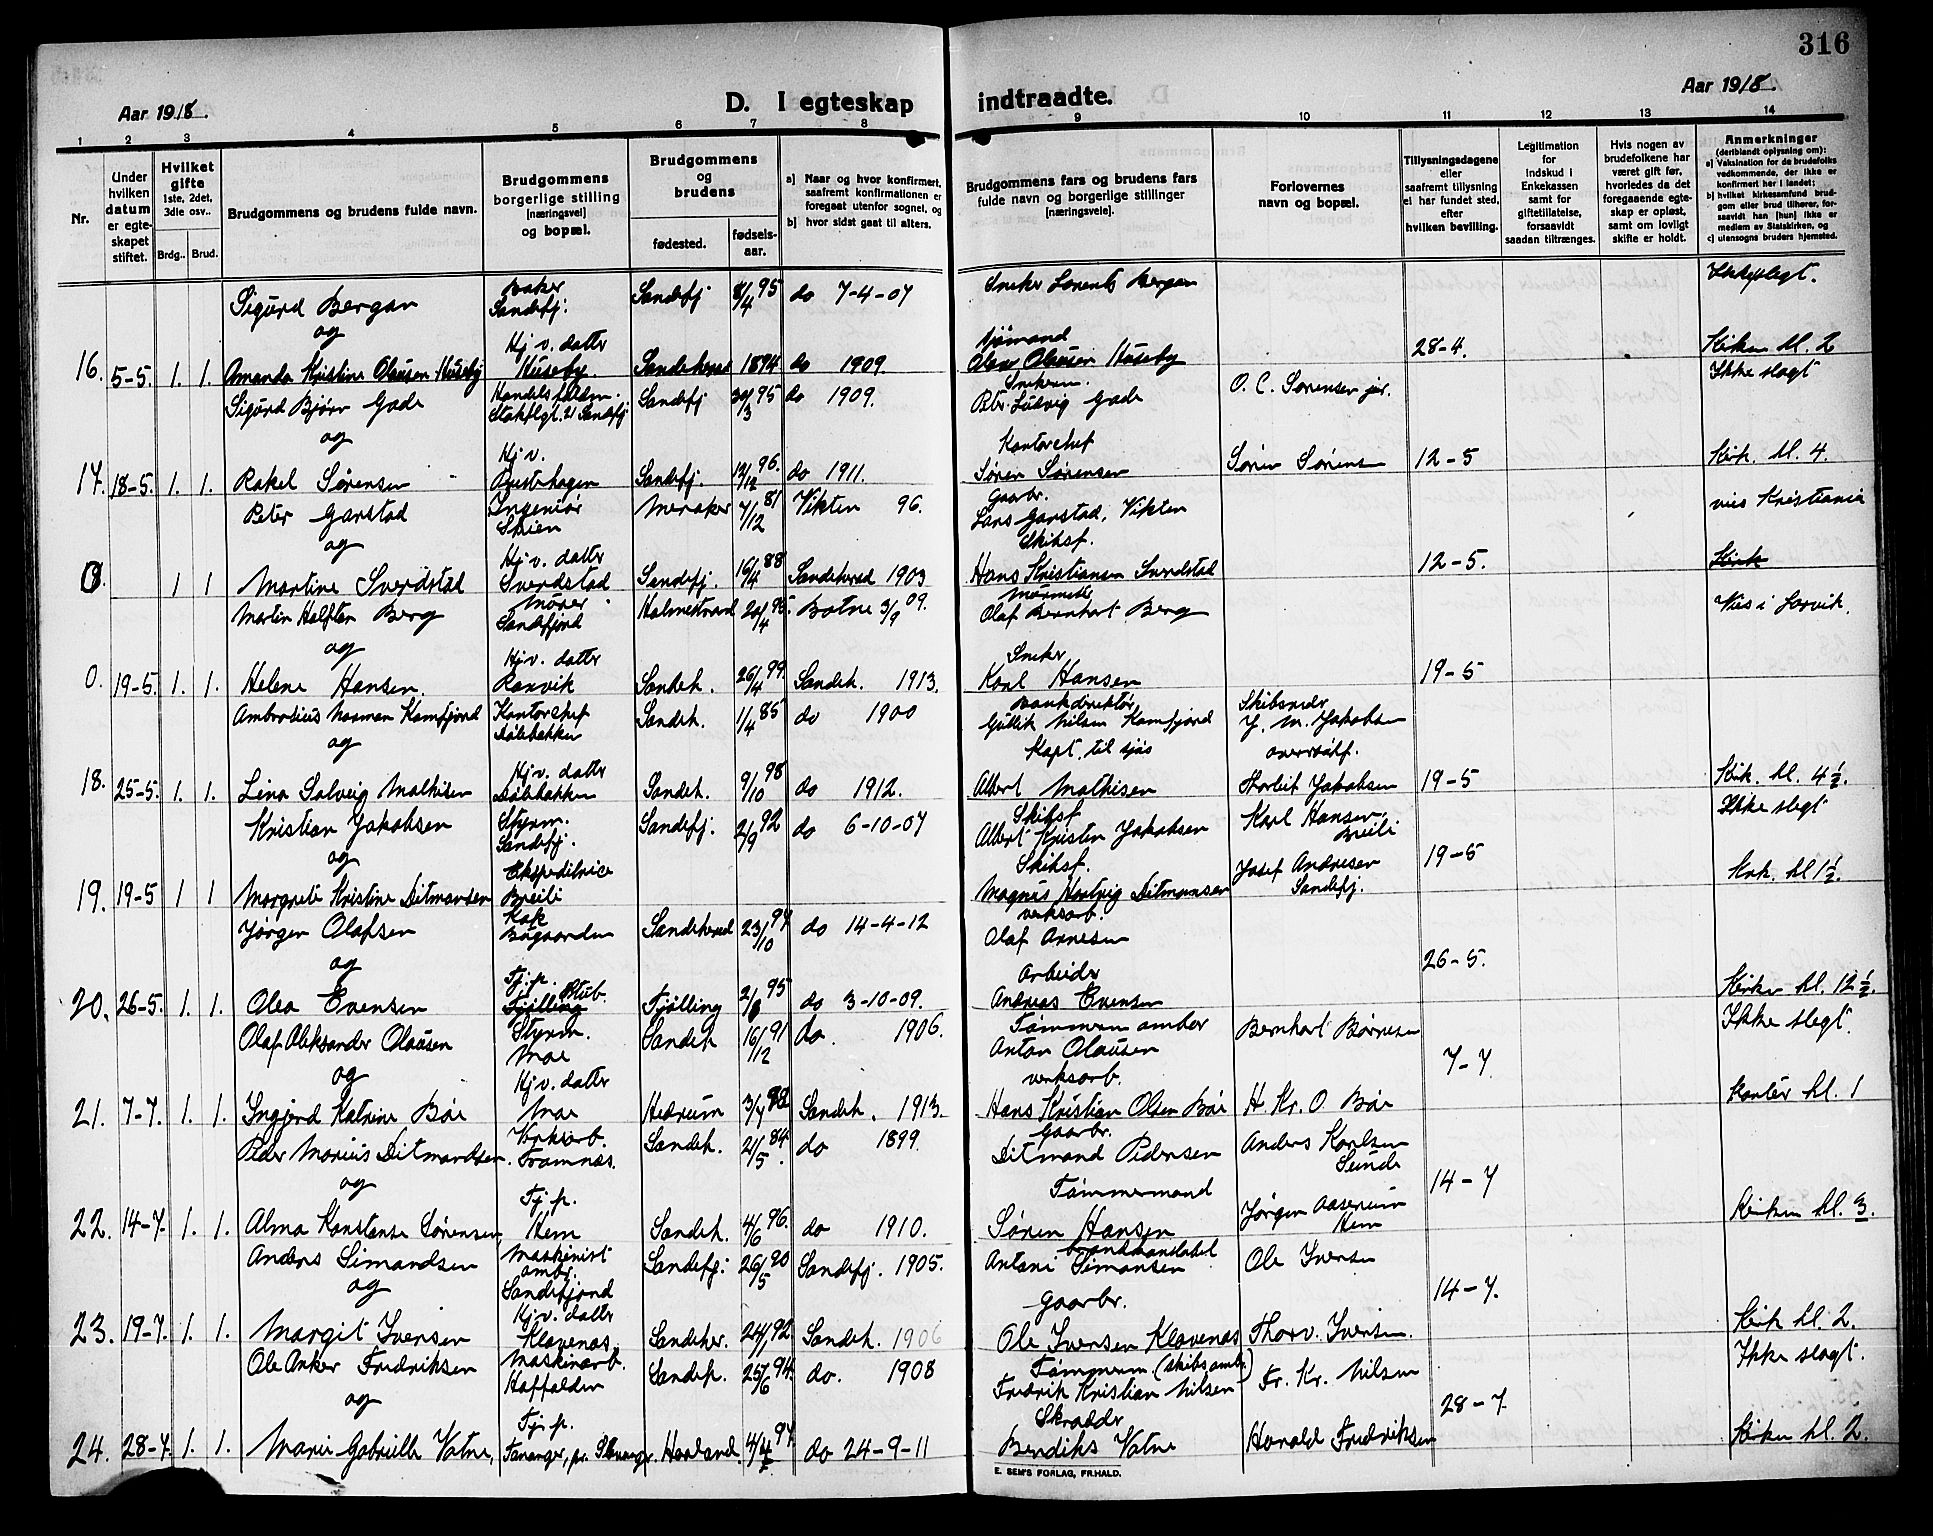 316
Aar 1918.
D. I egteskap indtraadte.
Aar 1918.
1 2 3 4 5 6 7 8 9 10 11 12 13 14
Nr.
Under hvilken datum er egteskapet stiftet.
Hvilket gifte 1ste, 2det, 3die osv..
Brdg.. Brud.
Brudgommens og brudens fulde navn.
Brudgommens borgerlige stilling [næringsvei] og bopæl.
Brudgommens og brudens
fødested. fødselsaar.
a) Naar og hvor konfirmert, saafremt konfirmationen er foregaat utenfor sognet, og
b) hvor sidst gaat til alters.
Brudgommens fars og brudens fars fulde navn og borgerlige stillinger [næringsveie].
Forlovernes navn og bopæl.
Tillysningsdagene eller saafremt tillysning ei har fundet sted, efter hvilken bevilling.
Legitimation for Indskud i Enkekassen samt for giftetillatelse, forsaavidt saadan tiltrænges.
Hvis nogen av brudefolkene har været gift før, hvorledes da det foregaaende egteskap er opløst, samt om lovligt skifte er holdt.
Anmerkninger (deriblandt oplysning om):
a) Vaksination for de brudefolks vedkommende, der ikke er konfirmert her i landet;
b) hvilket kirkesamfund brudgom eller brud tilhører, forsaavidt han [hun] ikke er medlem av Statskirken, og
c) utensogns bruders hjemsted.
Sigurd Bergan Baker Sandefj. Sandefj 8/4 95 do 7-4-07 Sneker Lorents Bergan
og
16. 5-5. 1. 1. Amanda Kristine Olausen Huseby Hj v. datter Huseby. Sandeherad 1894 do 1909. Olaus Olausen Huseby 28-4. Kirken kl. 2
Sigurd Bjørn Gade Sandefj 30/3 95 do 1909. Ludvig Gade O. C. Sørensen jr. Ikke slegt
og
17. 18-5. 1. 1. Rakel Sørensen Hj v. Sandefj. 12/12 96. do 1911. Kontorchef Søren Sørensen Søren Sørensen 12-5 Kirk. kl. 4.
Peter Garstad Ingeniør Skien Meraker 7/12 81 Vikten 96. Gaarbr. Lars Garstad, Vikten viet Kristiania
og
0. 1 1 Martine Sverdstad Hj v. datter Sverdstad Sandefj. 16/4 88 Sandeherad 1903 Skibsf. Hans Kristiansen Sverdstad 12-5. Kirk
Martin Halften Berg Murer Sandefjord Holmestrand 20/4 Botne 3/9 09. Olaf Bernhart Berg Vies i Larvik.
og
0. 19-5. 1. 1. Helene Hansen. Hj v. datter Ranvik Sandeh. 26/4 99. Sandeh. 1913. Sneker Karl Hansen 19-5
Ambrosius Kamfjord Kontorchef Sandeh. 1/4 85 do 1900 Bankdirektør Gullik Nilsen Kamfjord Skibsreder J. M. Jakobsen
og
18. 25-5. 1. 1. Lina Solveig Mathisen Hj v. datter Sandeh. 9/10 98 do 1912. Kapt. til sjøs Albert Mathisen Thorleif Jakobsen 19-5 Kirk. kl. 4 1/2.
Kristian Jakobsen Styrm. Sandefj. Sandefj. 2/9 92 do 6-10-07 Skibsf Albert Kristen Jakobsen Karl Hansen Breili Ikke slegt
og
19. 19-5 1 1 Margrete Kristine Ditmansen Ekspeditrice Breili Skibsf. Magnus Hartvig Ditmansen Josef Andresen Sandefj. 19-5 Kirk. kl 1 1/2.
Jørgen Olafsen Bugaarden Sandeherad 23/10 do 14-4-12 verksarb. Olaf Arnesen
og
20. 26-5. 1. 1. Olea Evensen Tj. p. Tjølling Tjølling 95 do 3-10-09. Arbeider Andreas Evensen 26-5. Kirken kl. 12 1/2.
Olaf Aleksander Olausen Styrm. Moe Sandeh 16/12 91 do. 1906. Anton Olausen Bernhart Børresen Ikke slegt.
og
21. 7-7. 1. 1. Ingjerd Katrine Bøe Hj v. datter Moe Hedrum Sandeh. 1913. verksarb. Hans Kristian Olsen Bøe H Kr. O Bøe 7-7 Kontor kl. 1
Peder Marius Ditmandsen. Verksarb. Framnæs. Sandeh. 21/5 84. do 1899. Gaarbr. Ditmand Pedersen Anders Karlsen Sunde
og
22. 14-7. 1. 1. Alma Konstanse Sørensen, Tj. p. Hem Sandeh. 4/6 96. do 1910. Tømmermand Søren Hansen Jørgen Aaserum Hem 14-7 Kirken kl. 3.
Anders Simandsen Maskinist Sandefjord Sandefj. 26/5 90 Sandefj. 1905. Antoni Simonsen Ole Iversen
og
23. 19-7. 1. 1. Margit Iversen Hj. v. datter Klavenæs Sandeher. 92. Sandeh. 1906 Gaarbr. Ole Iversen Klavenæs Thorv. Iversen. 14-7. Kirk kl. 2.
Ole Anker Fredriksen Maskinarb. Haffalden Sandeh. 25/6 94. do. 1908 Tømmerm (skibsømbr.) Fredrik Kristian Nilsen Fr. Kr. Nilsen Ikke slegt.
og
24. 28-7. 1. 1. Marie Gabrielle Vatne, Tj. p. Tananger, pr. Stavanger. Havland. do 24-9-11 Skrædder Bendiks Vatne Harald Fredriksen 28-7. Kirken kl. 2.
E. SEM'S FORLAG, FR.HALD.